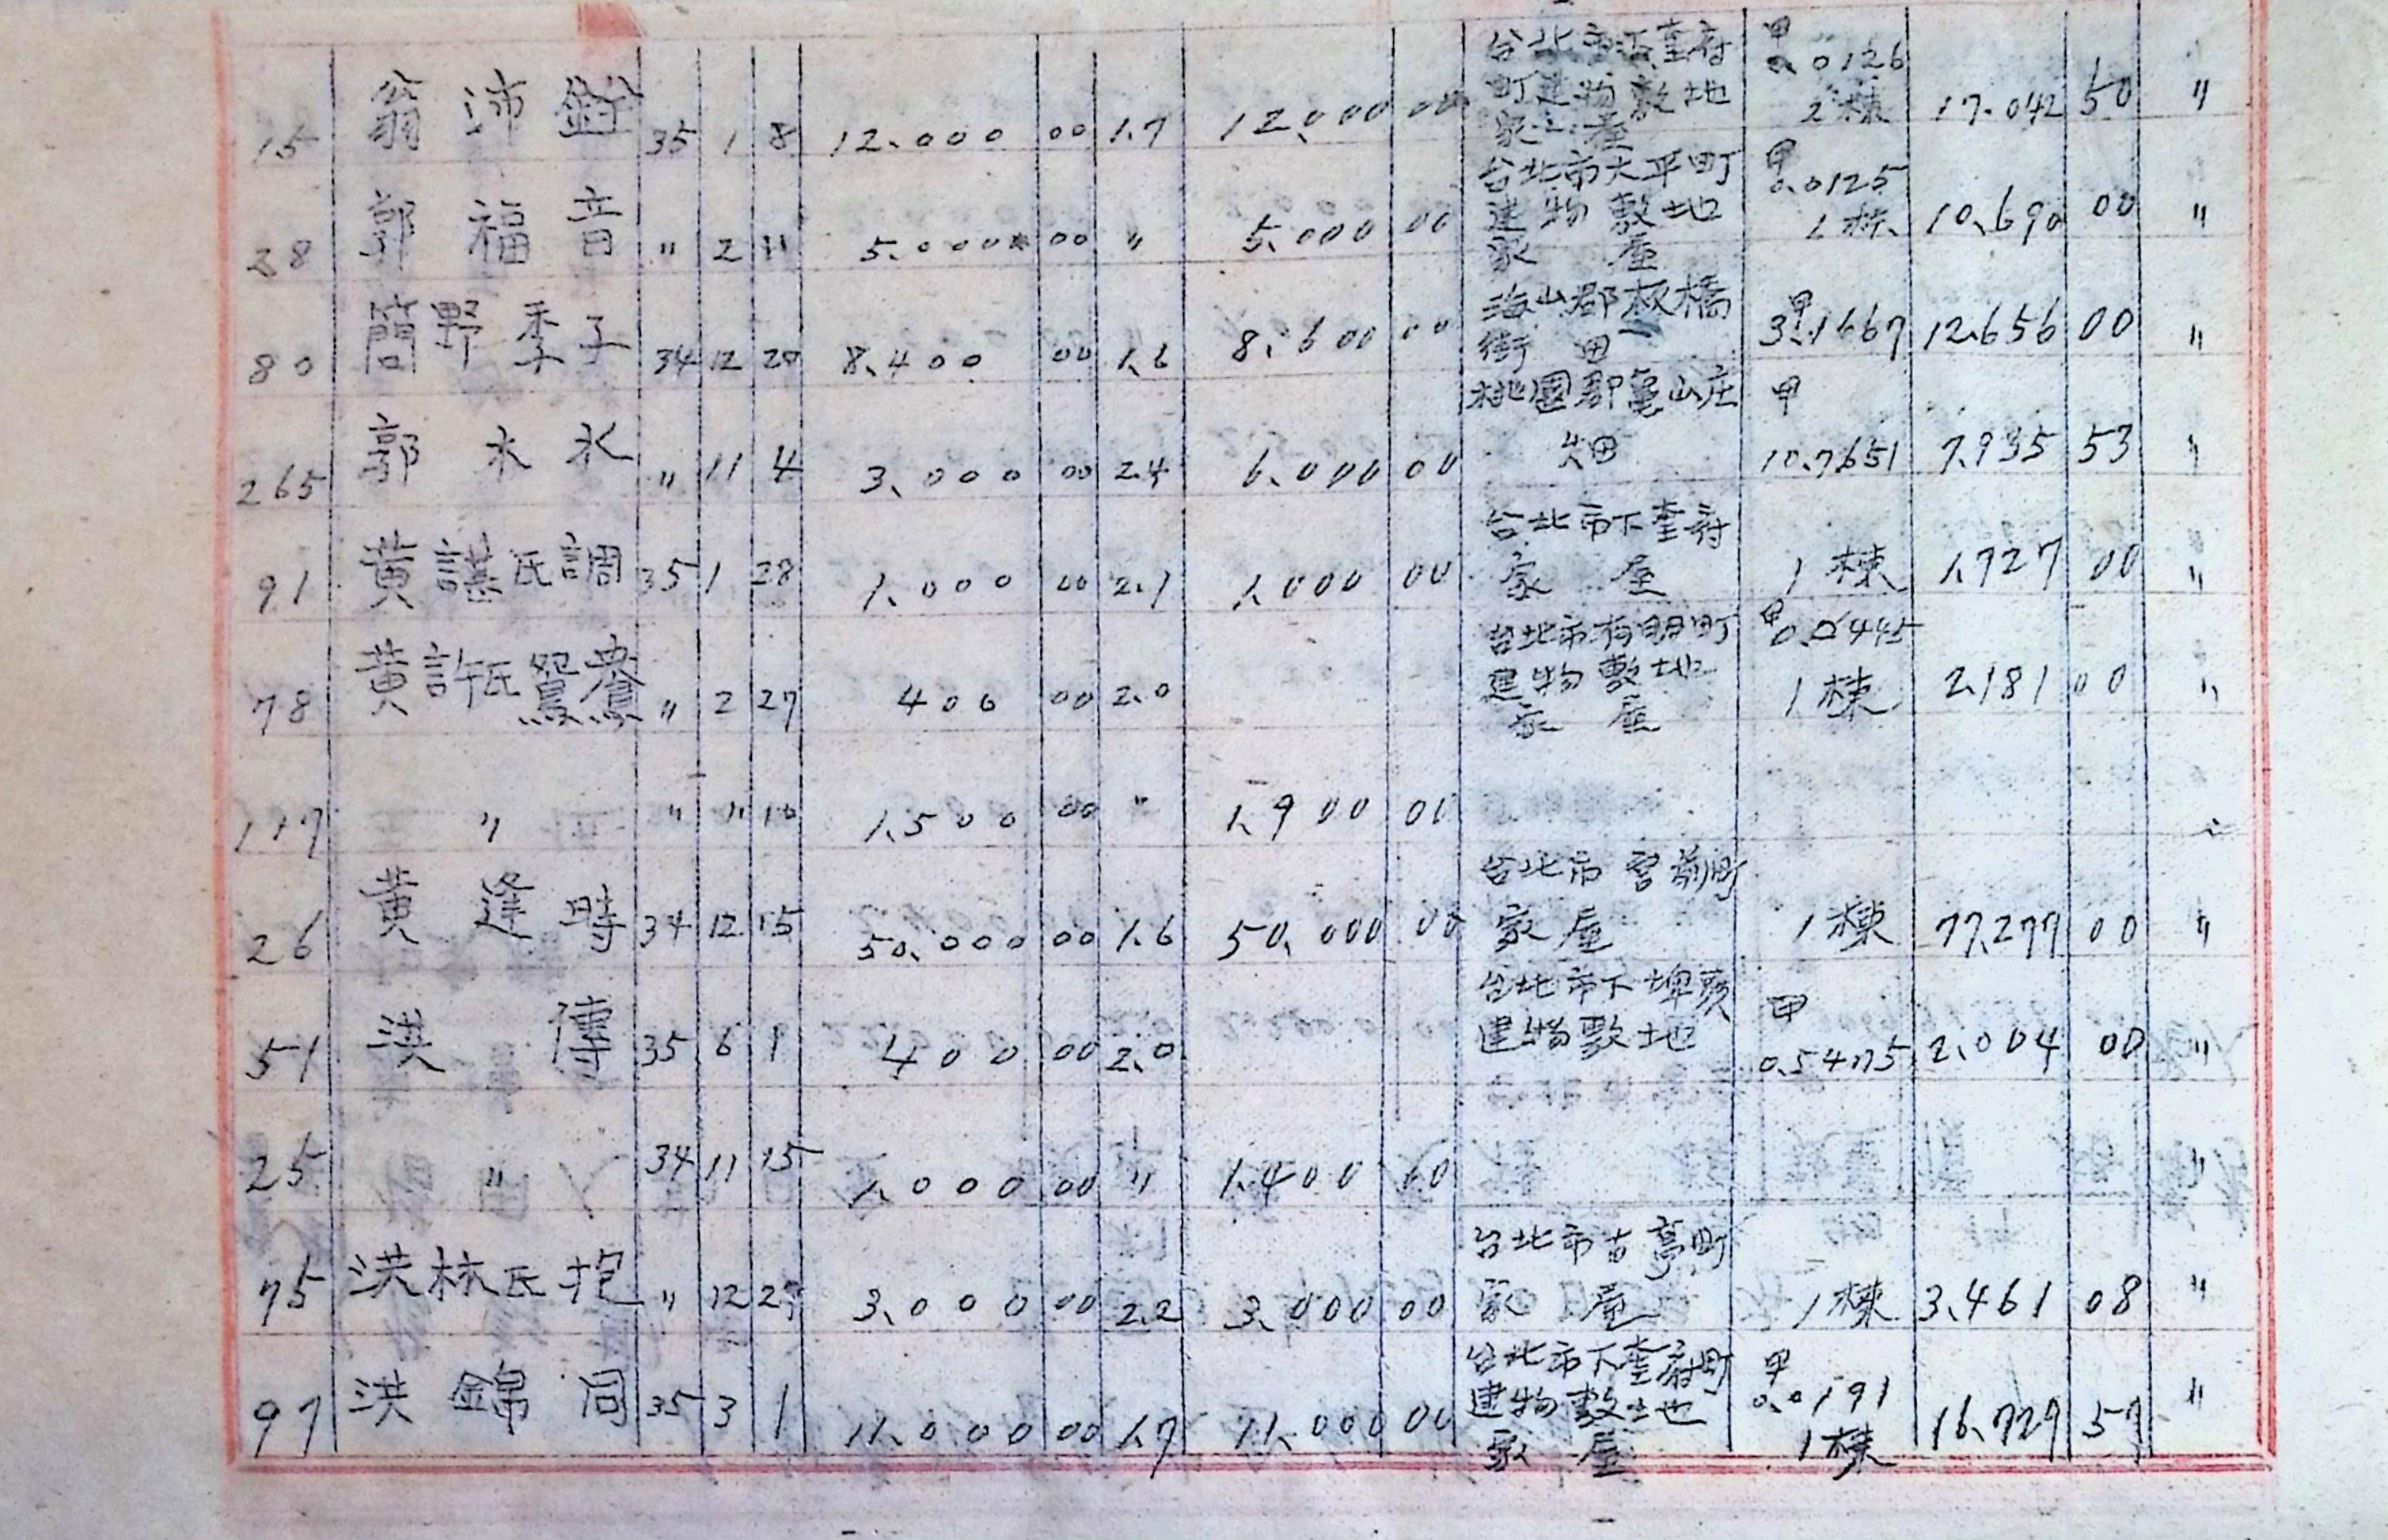 15 翁沛 35 1 8 12.000 00 1.7 12.000 00 台北市 奎府町建物敷地家屋 甲0.0126 2棟 17.042 50 〃
28 郭福音 〃 2 11 5.000 00 〃 5.000 00 台北市太平町建物敷地家屋 甲0.0125 1棟 10.690 00 〃
80 簡野季子 34 12 28 8.400 00 1.6 8.600 00 海山郡板橋街田 甲3.1667 12.656 00 〃
265 郭木水 〃 11 4 3.000 00 2.4 6.000 00 桃園郡亀山庄畑 甲10.7651 7.935 53 〃
91 黄諶氏調 35 1 28 1.000 00 2.1 1.000 00 台北市下奎府家屋 1棟 1.727 00 〃
78 黄許氏鴛鴦 〃 2 27 400 00 2.0 台北市有明町建物敷地家屋 甲0.0445 1棟 2.181 00 〃
117 〃 〃 〃 10 1.500 00 〃 1.900 00
26 黄逢時 34 12 15 50.000 00 1.6 50.000 00 台北市宮前町家屋 1棟 77.277 00 〃
51 洪傳 35 6 1 400 00 2.0 台北市下埤頭建物敷地 甲0.5475 2.004 00 〃
25 〃 34 11 15 1.000 00 〃 1.400 00 〃
75 洪林氏抱 〃 12 27 3.000 00 2.2 3.000 00 台北市古亭町家屋 1棟 3.461 08 〃
97 洪錦同 35 3 1 11.000 00 1.7 11.000 00 台北市下奎府町建物敷地家屋 甲0.0191 1棟 16.729 57 〃